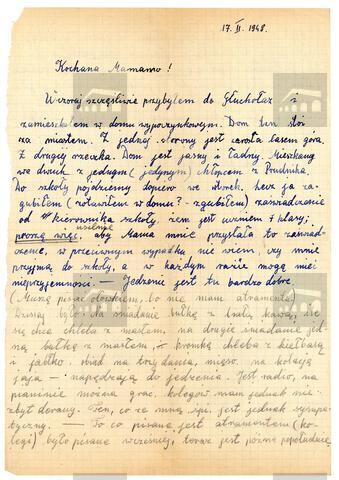 17. II. 1948.
Kochana Mamamo!
Wczoraj szczęśliwie przybyłem do Głuchołaz i
zamieszkałem w domu wypoczynkowym. Dom ten stoi
za miastem. Z jednej strony jest zarosła lasem góra.
Z drugiej rzeczka. Dom jest jasny i ładny. Mieszkamy
we dwuch z jednym (jedynym) chłopcem z Prudnika.
Do szkoły pójdziemy dopiero we wtorek. Lecz ja za-
gubiłem (zostawiłem w domu? - zgubiłem) zaświadczenie
od kierownika szkoły, że jestem uczniem 7 klasy;
proszę więc usilnie, aby Mama mnie przysłała to zaświad-
czenie, w przeciwnym wypadku nie wiem, czy mnie
przyjmą do szkoły, a w każdym razie mogą mieć
nieprzyjemności. — Jedzenie jest tu bardzo dobre
(Muszę pisać ołówkiem, bo nie mam atramentu)
Dzisiaj było: na śniadanie bułka z białą kawą, ile
się chce chleba z masłem, na drugie śniadanie jed-
ną bułkę z masłem, kromkę chleba z kiełbasą
i jabłko, obiad na trzy dania, mięso, na kolację
jaja — napędzają do jedzenia. Jest radio, na
pianinie można grać, kolegów mam jednak nie-
zbyt dorany. Ten, co ze mną śpi, jest jednak sympa-
tyczny. — To co pisane jest atramentem (ko-
legi), było pisane wcześniej, teraz jest późne popołudnie.